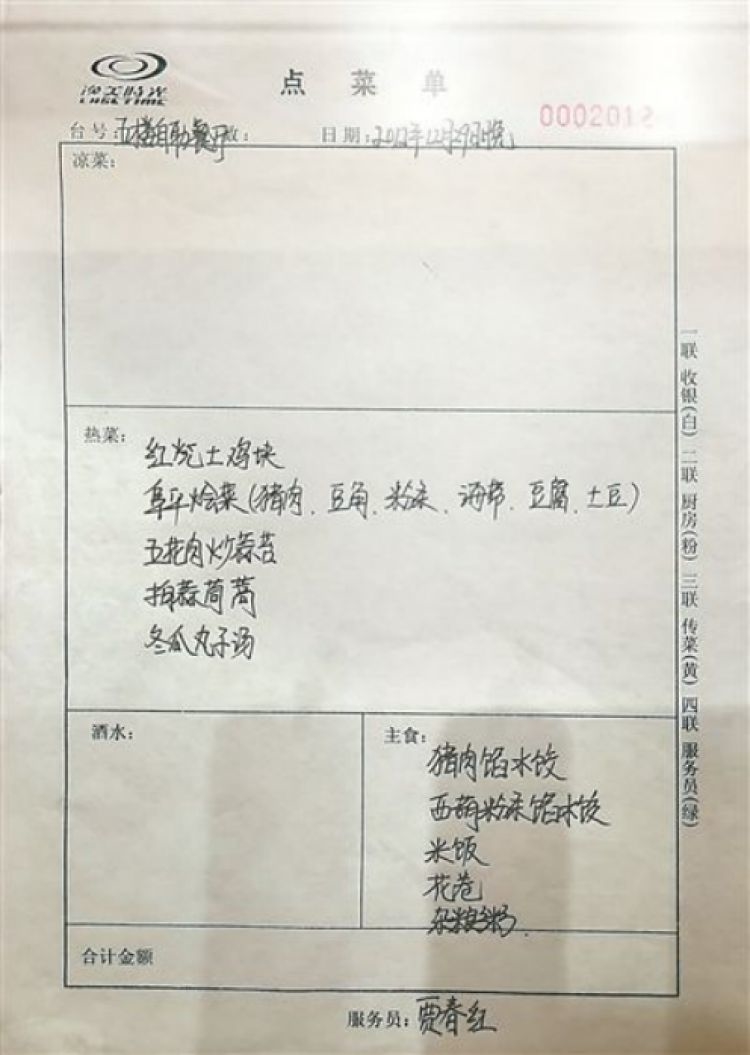 点菜单
0002012
台号：五楼自助餐厅 数： 日期：2012年12月29日晚
凉菜：
热菜：
红烧土鸡块
阜平烩菜（猪肉、豆角、粉条、海带、豆腐、土豆）
五花肉炒蒜苔
拍蒜茼蒿
冬瓜丸子汤
酒水：
主食：
猪肉馅水饺
西葫粉条馅水饺
米饭
花卷
杂粮粥
合计金额
服务员：贾春红
一联 收银（白） 二联 厨房（粉） 三联 传菜（黄） 四联 服务员（绿）